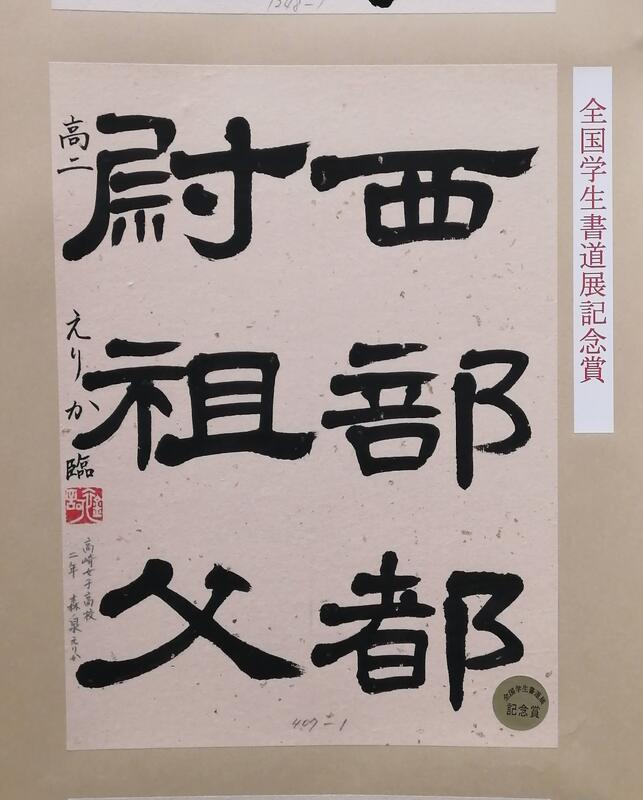 1348-1
全国学生書道展記念賞
西部都
尉祖父
高二 えりか臨
高崎女子高校
二年 森泉えりか
407-1
全国学生書道展
記念賞